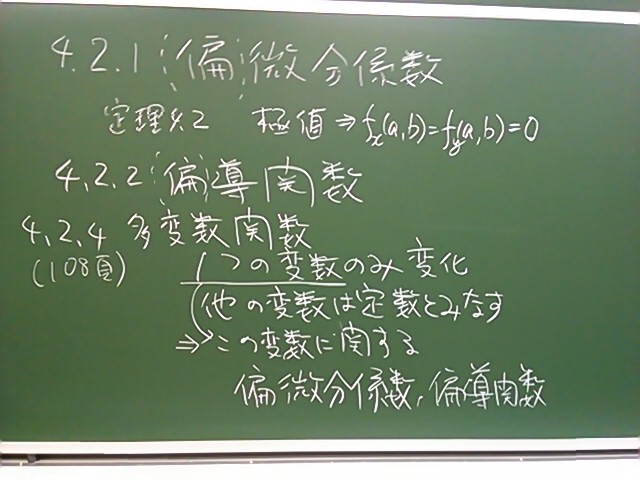 4.2.1 偏微分係数
定理4.2 極値⇒fx(a,b)=fy(a,b)=0
4.2.2 偏導関数
4.2.4 多変数関数
(108頁) 1つの変数のみ変化
(他の変数は定数とみなす
⇒この変数に関する
偏微分係数,偏導関数